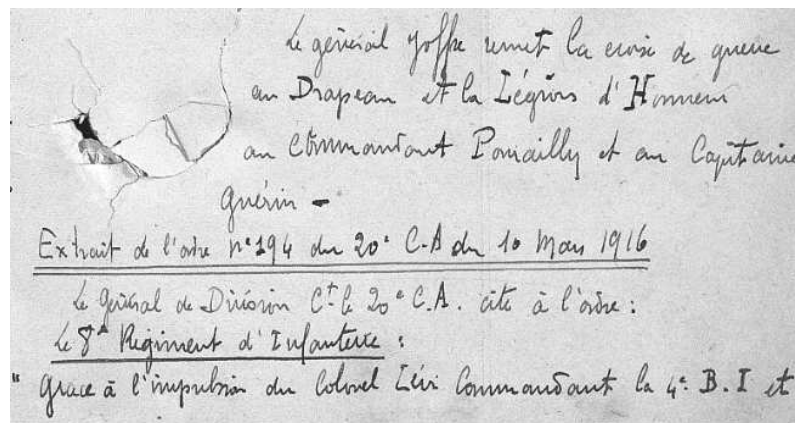 Le général Joffre remet la croix de guerre
au Drapeau et la Légion d'Honneur
au Commandant Pomailly et au Capitaine
Guérin -
Extrait de l'ordre n° 194 du 20e C.A du 10 Mars 1916
Le général de Division Ct le 20e C.A. cite à l'ordre :
Le 8e Régiment d'Infanterie :
" Grace à l'impulsion du Colonel Lévi Commandant la 4e B.I et